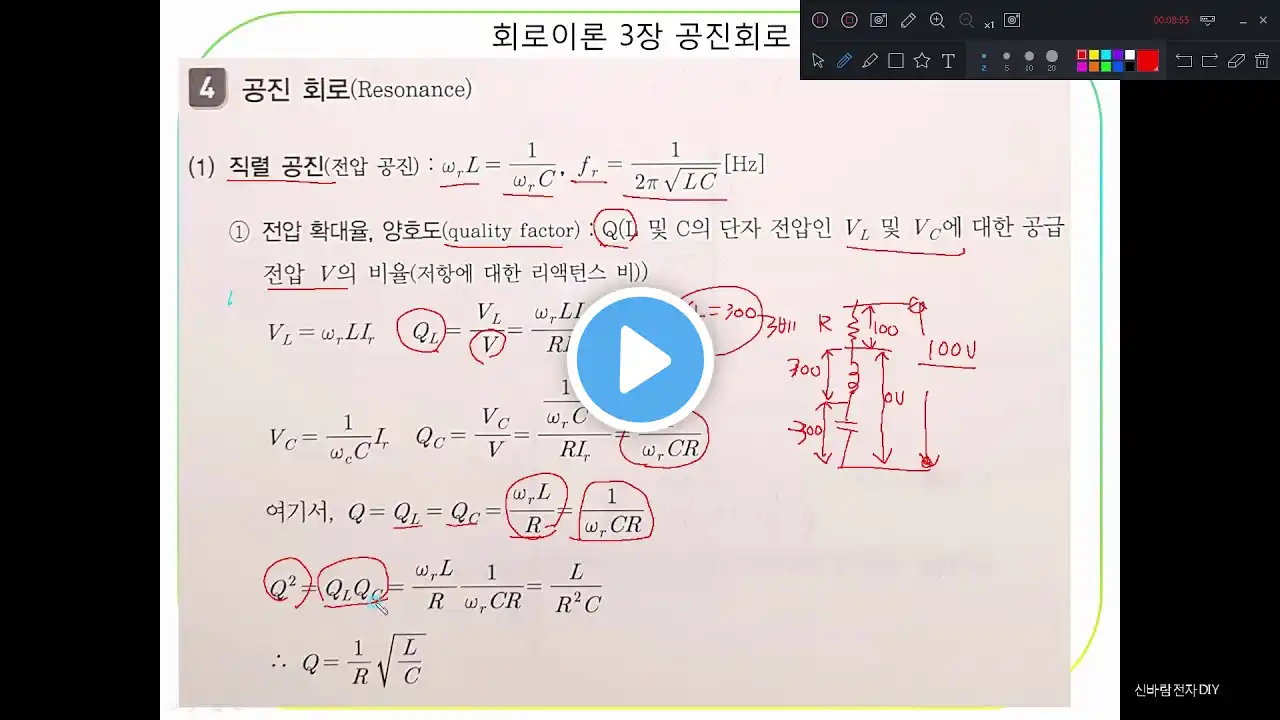 회로이론 3장 공진회로
x1
00:08:55
2 5 10 20
4 공진 회로(Resonance)
(1) 직렬 공진(전압 공진) : ω_r L = 1/(ω_r C), f_r = 1/(2π√(LC)) [Hz]
① 전압 확대율, 양호도(quality factor) : Q(L 및 C의 단자 전압인 V_L 및 V_C에 대한 공급
전압 V의 비율(저항에 대한 리액턴스 비))
V_L = ω_r L I_r Q_L = V_L/V =
=300
R 100
100V
300
0V
300
V_C = 1/(ω_c C) I_r Q_C = V_C/V = (1/(ω_r C))/(R I_r) = /(ω_r CR)
여기서, Q = Q_L = Q_C = ω_r L/R = 1/(ω_r CR)
Q² = Q_L Q_C = ω_r L/R 1/(ω_r CR) = L/(R²C)
∴ Q = 1/R √(L/C)
신바람 전자 DIY